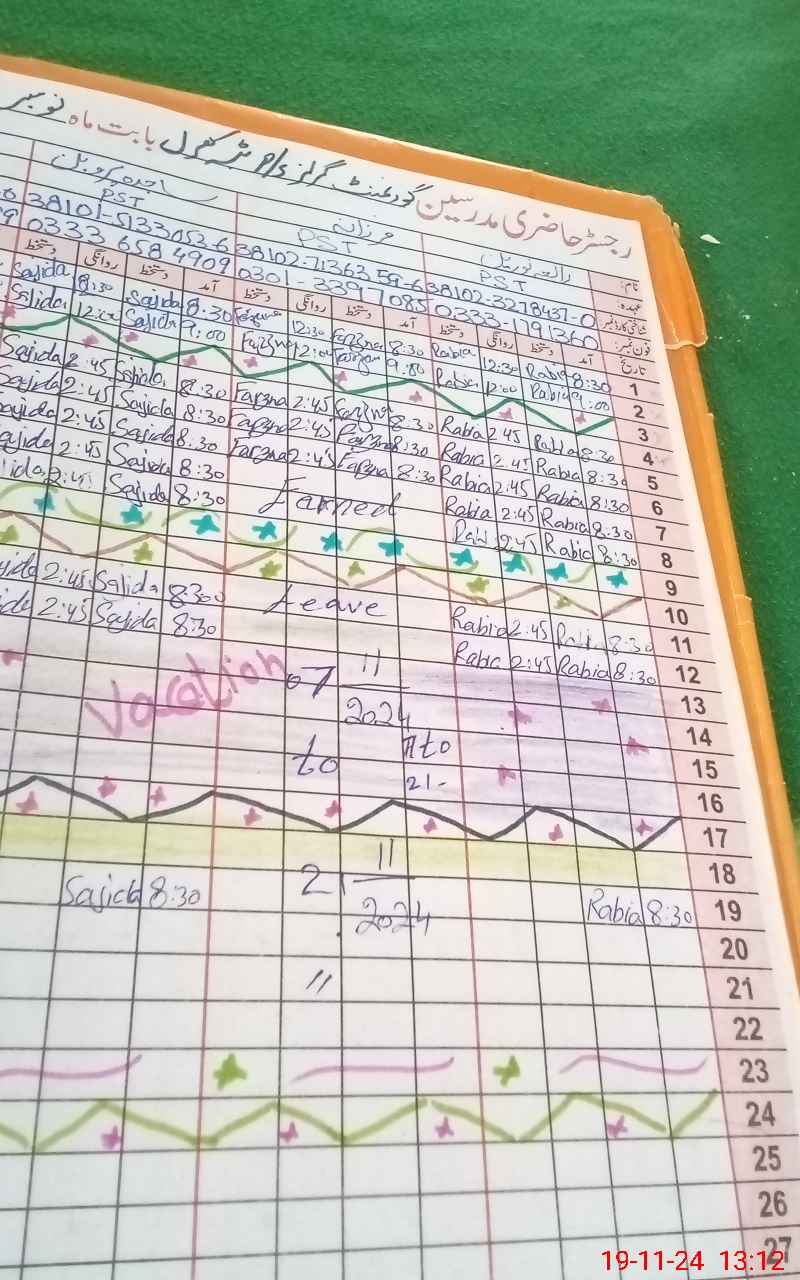 رجسٹر حاضری مدرسین گورنمنٹ گرلز بابت ماہ نومبر
نام: رابعہ فرزانہ ساجدہ
عہدہ: PST PST PST
38102-3278437-0 38102-71363 59-6 38101-5133053-6
فون نمبر: 0333-1791360 0301-3397085 0333 658 4909
تاریخ آمد دستخط روانگی دستخط آمد دستخط روانگی دستخط آمد دستخط روانگی دستخط
1 8:30 Rabia 12:30 Rabia 8:30 Farzna 12:30 8:30 Sajida 8:30 Sajida
2 9:00 Rabia 12:00 Rabia 9:00 Farzna 12:00 Farzna 9:00 Sajida Sajida
3
4 8:30 Rabia 2:45 Rabia 8:30 Farzna 2:45 Farzna 8:30 Sajida 2:45 Sajida
5 8:30 Rabia 2:45 Rabia 8:30 Farzna 2:45 Farzna 8:30 Sajida 2:45 Sajida
6 8:30 Rabia 2:45 Rabia 8:30 Farzna 2:45 Farzna 8:30 Sajida 2:45 Sajida
7 8:30 Rabia 2:45 Rabia Earned 8:30 Sajida 2:45
8 8:30 Rabia 2:45 Rabi 8:30 Sajida 2:45
9
10
11 8:30 Rabia 2:45 Rabia Leave 8:30 Sajida 2:45
12 8:30 Rabia 2:45 Rabia 8:30 Sajida 2:45
13 Vacation 07 11
14 2024
15 to to
16 21-
17
18 21 11
19 8:30 Rabia 2024 8:30 Sajida
20
21 "
22
23
24
25
26
27
19-11-24 13:12